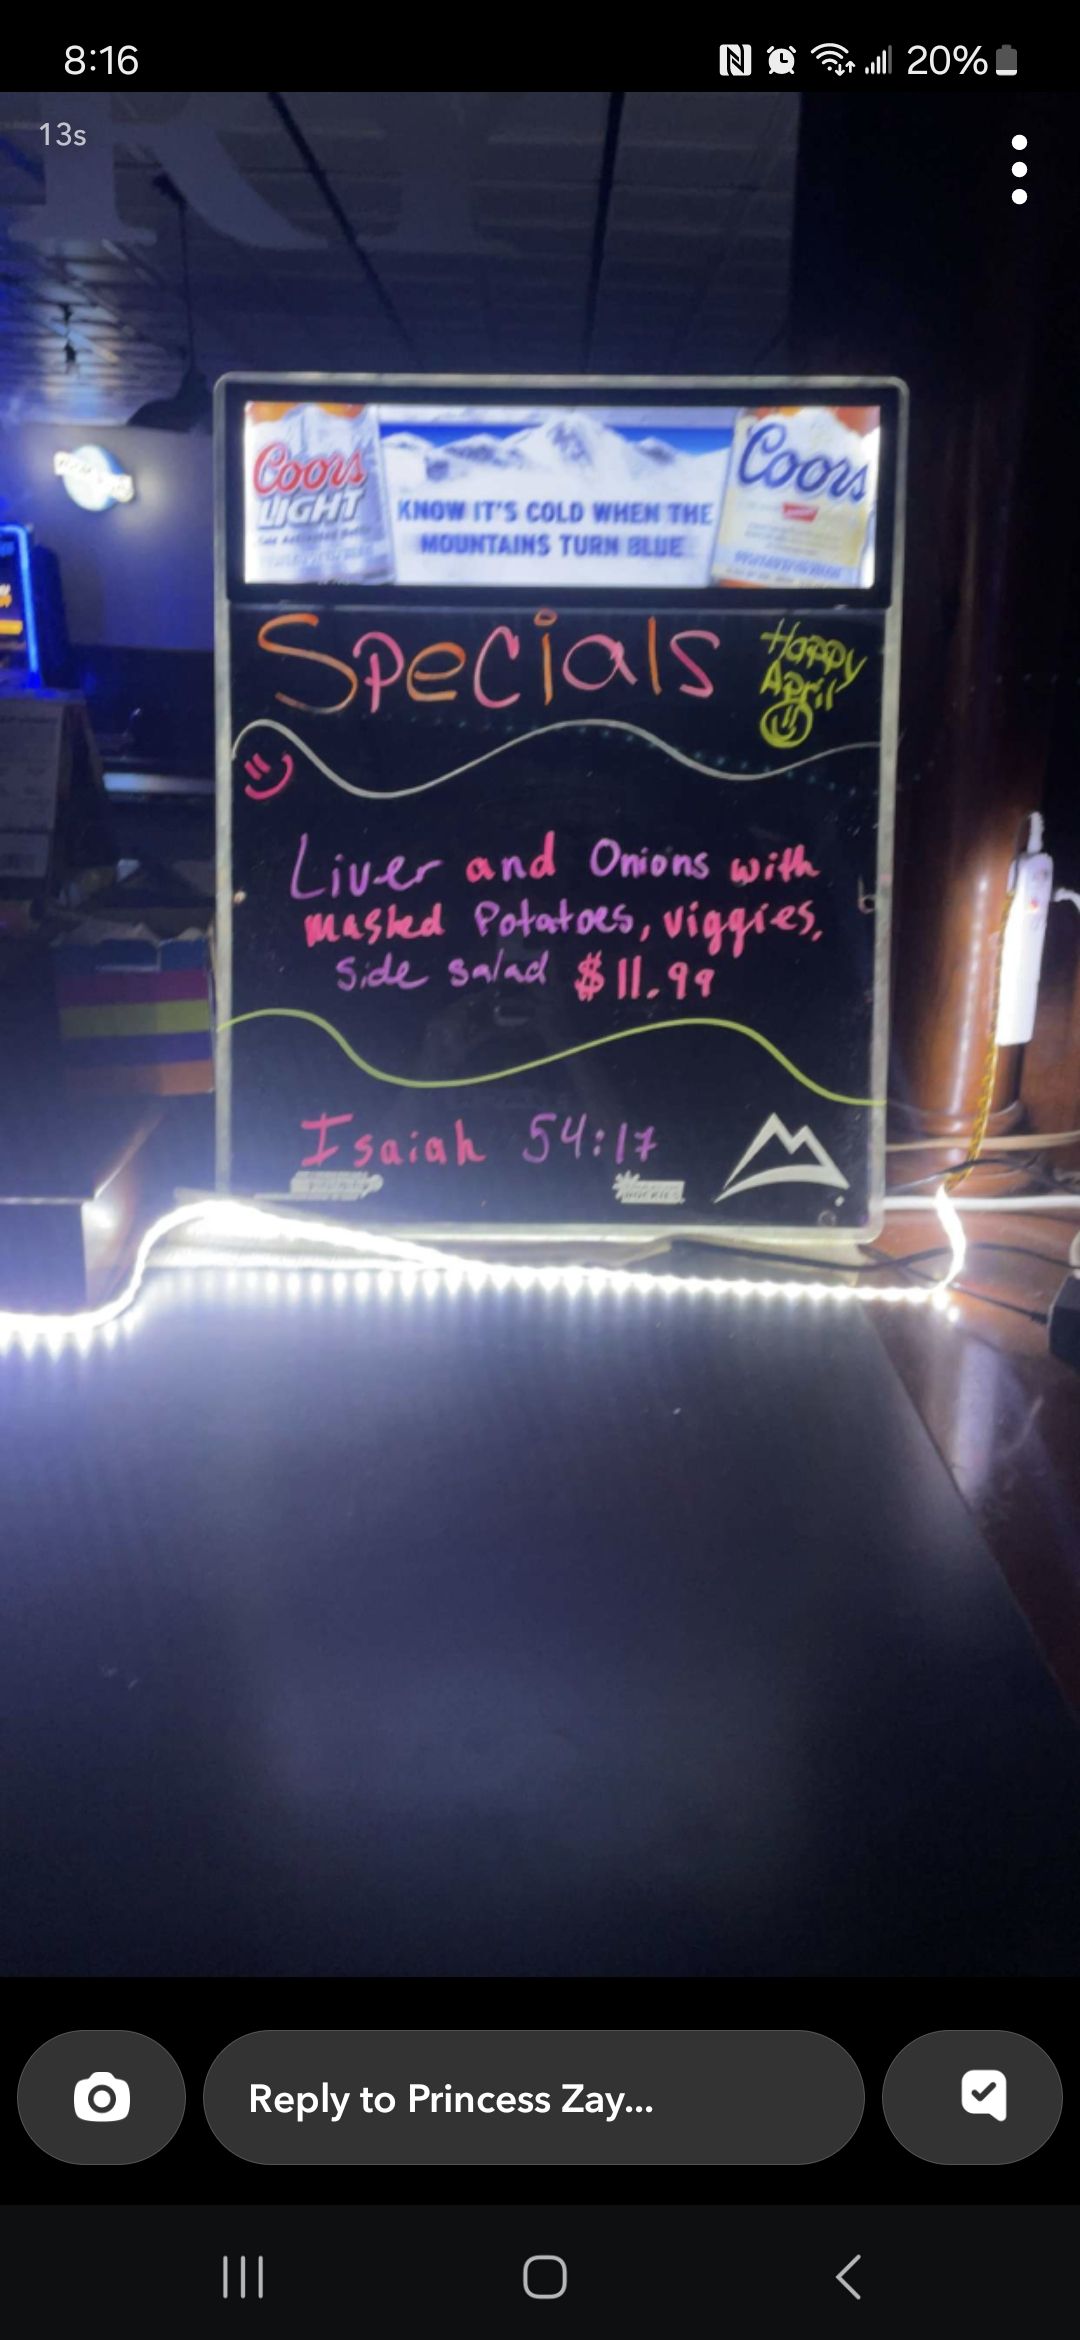 8:16
20%
13s
Coors
LIGHT
KNOW IT'S COLD WHEN THE
MOUNTAINS TURN BLUE
Coors
Specials
Happy
April
Liver and Onions with
mashed Potatoes, viggies,
Side salad $11.99
Isaiah 54:17
Reply to Princess Zay...